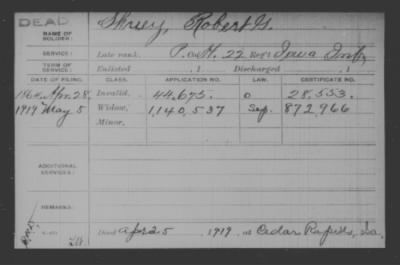 DEAD
NAME OF SOLDIER: Robert G.
SERVICE: Late rank, P. Co. H. 22 Reg't Iowa Inf.
TERM OF SERVICE: Enlisted , 1 Discharged , 1
DATE OF FILING. CLASS. APPLICATION NO. LAW. CERTIFICATE NO.
1864 Apr. 28. Invalid, 44,675. 0 28,533.
1919 May 5 Widow, 1,140,537 872,966
Minor,
ADDITIONAL SERVICES:
REMARKS:
Died Apr 25 1919, at Cedar Rapids, Ia.